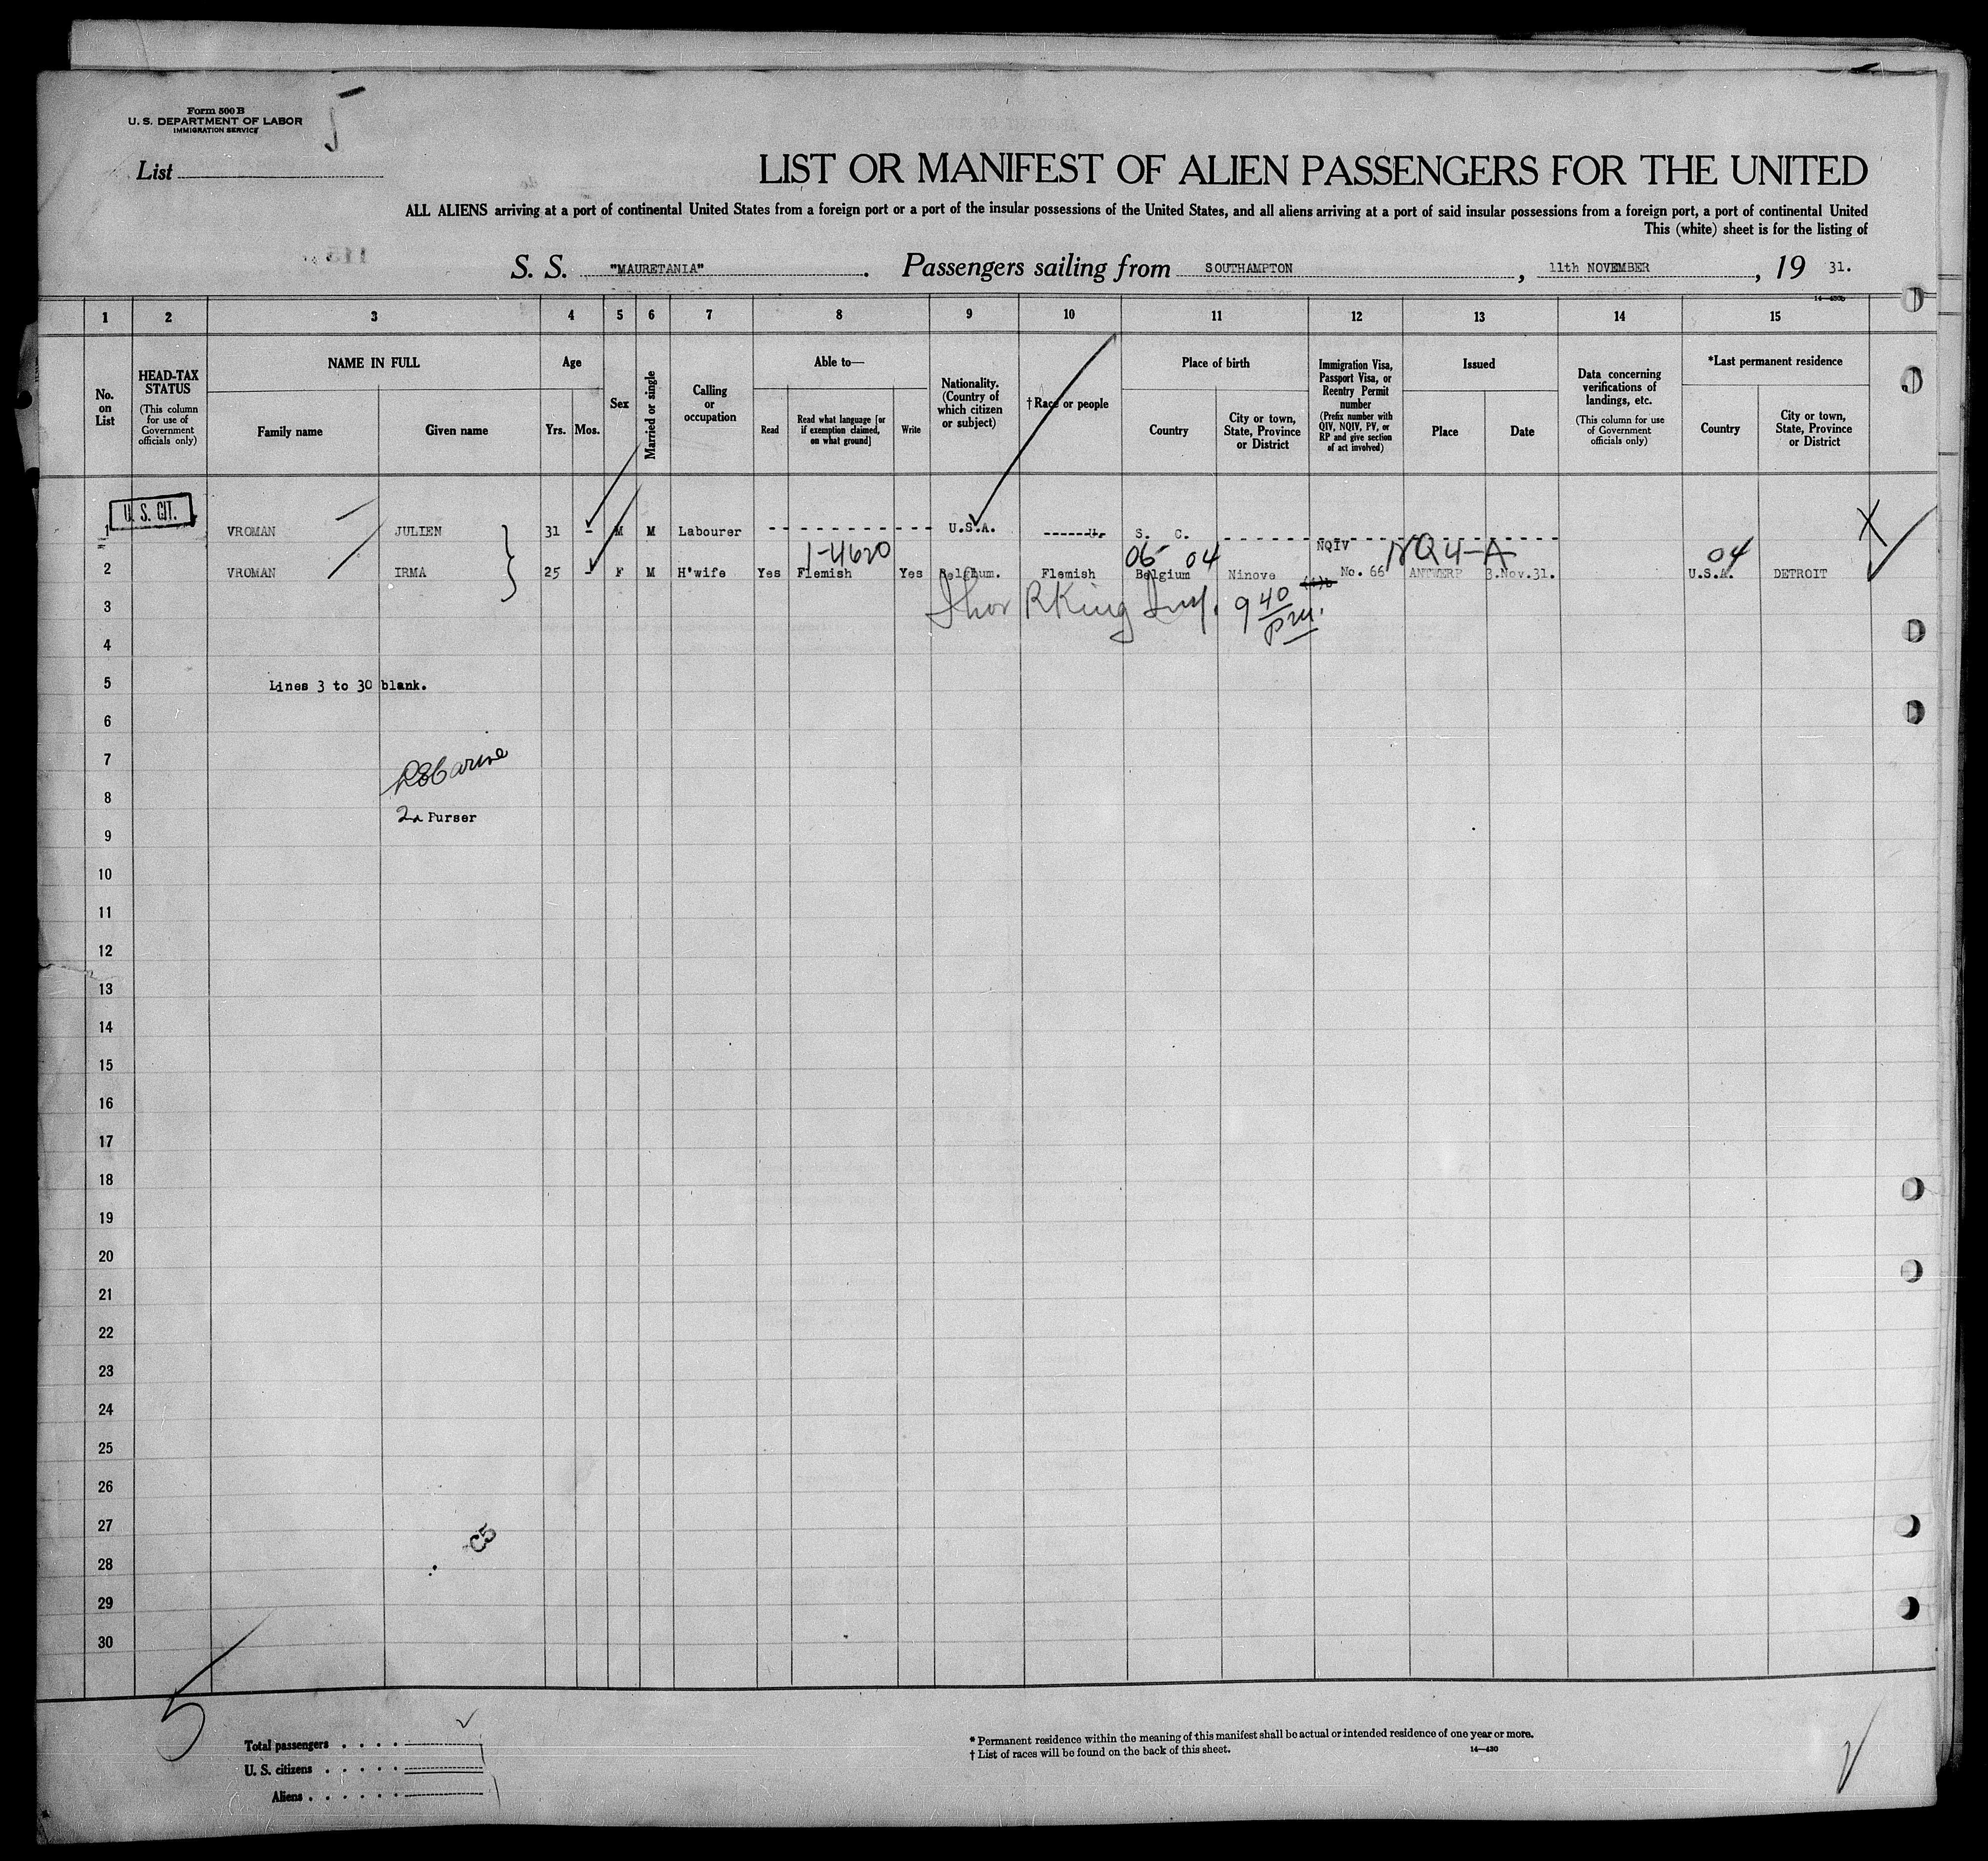 Form 500 B
U. S. DEPARTMENT OF LABOR
IMMIGRATION SERVICE
List
LIST OR MANIFEST OF ALIEN PASSENGERS FOR THE UNITED
ALL ALIENS arriving at a port of continental United States from a foreign port or a port of the insular possessions of the United States, and all aliens arriving at a port of said insular possessions from a foreign port, a port of continental United
This (white) sheet is for the listing of
S. S. "MAURETANIA". Passengers sailing from SOUTHAMPTON, 11th NOVEMBER, 19 31.
14—430b
1 2 3 4 5 6 7 8 9 10 11 12 13 14 15
No. on List
HEAD-TAX STATUS
(This column for use of Government officials only)
NAME IN FULL
Family name
Given name
Age
Yrs. Mos.
Sex
Married or single
Calling or occupation
Able to—
Read
Read what language [or if exemption claimed, on what ground]
Write
Nationality. (Country of which citizen or subject)
†Race or people
Place of birth
Country
City or town, State, Province or District
Immigration Visa, Passport Visa, or Reentry Permit number
(Prefix number with QIV, NQIV, PV, or RP and give section of act involved)
Issued
Place
Date
Data concerning verifications of landings, etc.
(This column for use of Government officials only)
*Last permanent residence
Country
City or town, State, Province or District
U. S. CIT.
1 VROMAN JULIEN 31 - M M Labourer U.S.A. S. C.
1-4620 06 04 NQIV NQ 4-A 04
2 VROMAN IRMA 25 - F M H'wife Yes Flemish Yes Belgium. Flemish Belgium Ninove No. 66 ANTWERP 3.Nov.31. U.S.A. DETROIT
3 R King 9 40 pm.
4
5 Lines 3 to 30 blank.
6
7
8
2d Purser
9
10
11
12
13
14
15
16
17
18
19
20
21
22
23
24
25
26
27
28
29
30
5
Total passengers
U. S. citizens
Aliens
* Permanent residence within the meaning of this manifest shall be actual or intended residence of one year or more.
† List of races will be found on the back of this sheet.
14—430